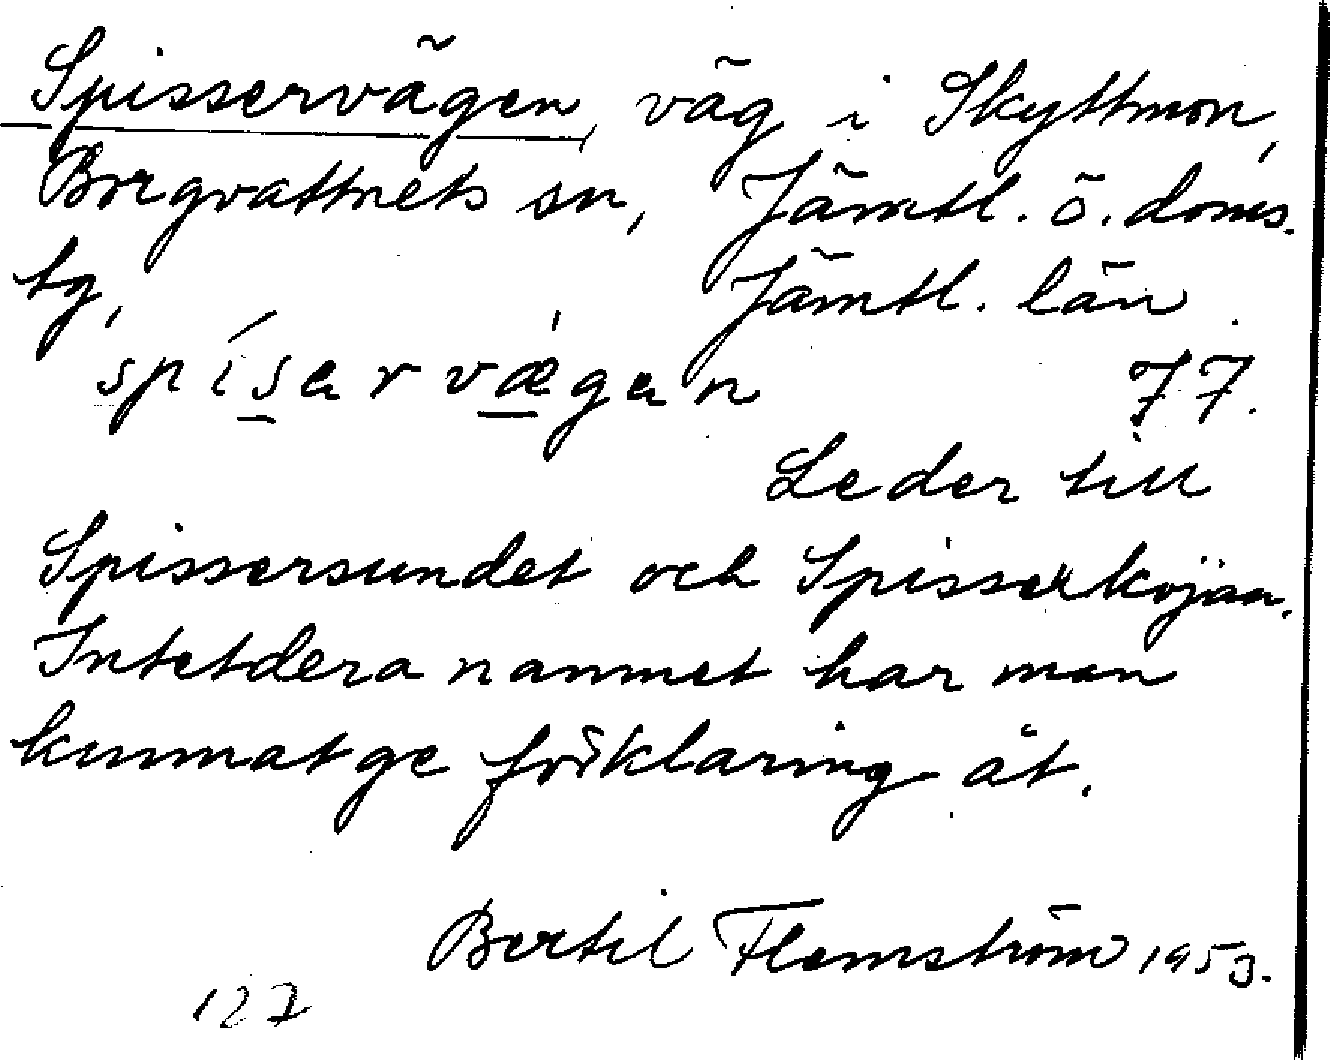 Spisservägen, väg i Skyttmon,
Borgvattnets sn, Jämtl. ö. doms.
tg, Jämtl. län
spísarvǽgan 77.
Leder till
Spissersundet och Spisserkojan.
Intetdera namnet har man
kunnat ge förklaring åt.
Bertil Flemström 1953.
127